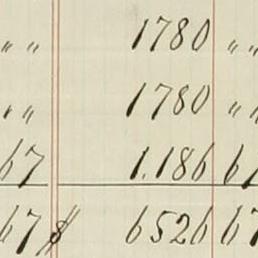 〃 〃 1780 〃 〃
〃 〃 1780 〃 〃
67 1.186 67
67 $ 6526 67